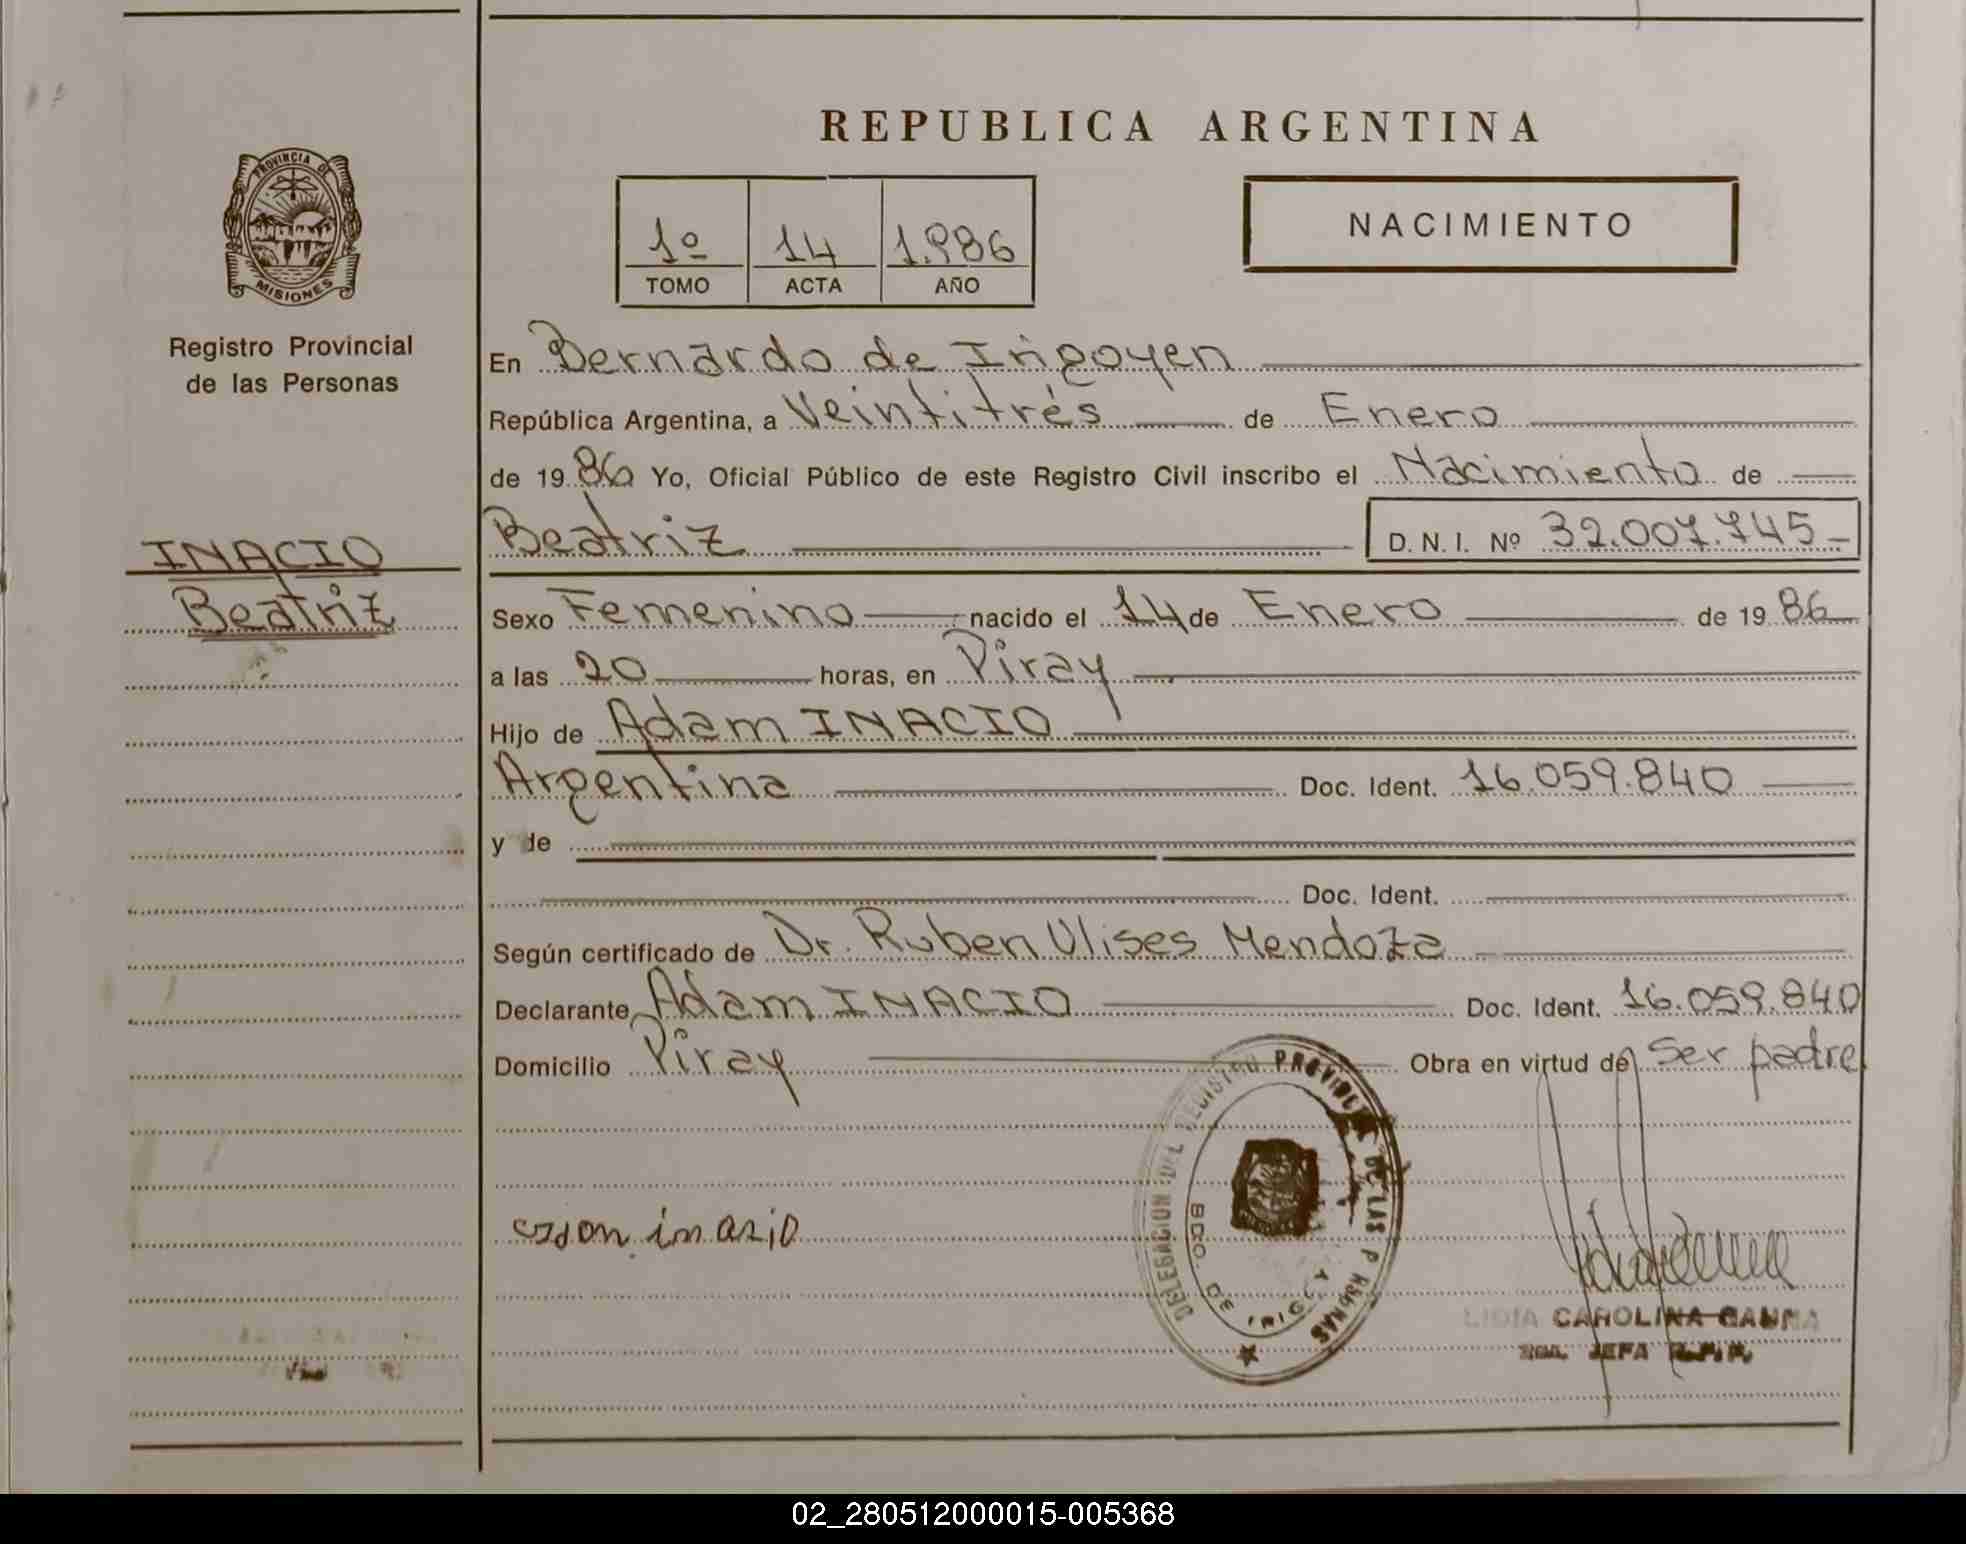 REPUBLICA ARGENTINA
PROVINCIA DE
MISIONES
Registro Provincial
de las Personas
1º 14 1.986
TOMO ACTA AÑO
NACIMIENTO
En Bernardo de Irigoyen
República Argentina, a Veintitrés de Enero
de 1986 Yo, Oficial Público de este Registro Civil inscribo el Nacimiento de
INACIO
Beatriz
Beatriz D.N.I. Nº 32.007.745
Sexo Femenino nacido el 14 de Enero de 1986
a las 20 horas, en Piray
Hijo de Adam INACIO
Argentina Doc. Ident. 16.059.840
y de
Doc. Ident.
Según certificado de Dr. Ruben Ulises Mendoza
Declarante Adam INACIO Doc. Ident. 16.059.840
Domicilio Piray Obra en virtud de Ser padre
DELEGACION DEL REGISTRO PROVINCIAL DE LAS PERSONAS
BDO. DE IRIGOYEN
LIDIA CAROLINA
JEFA
02_280512000015-005368